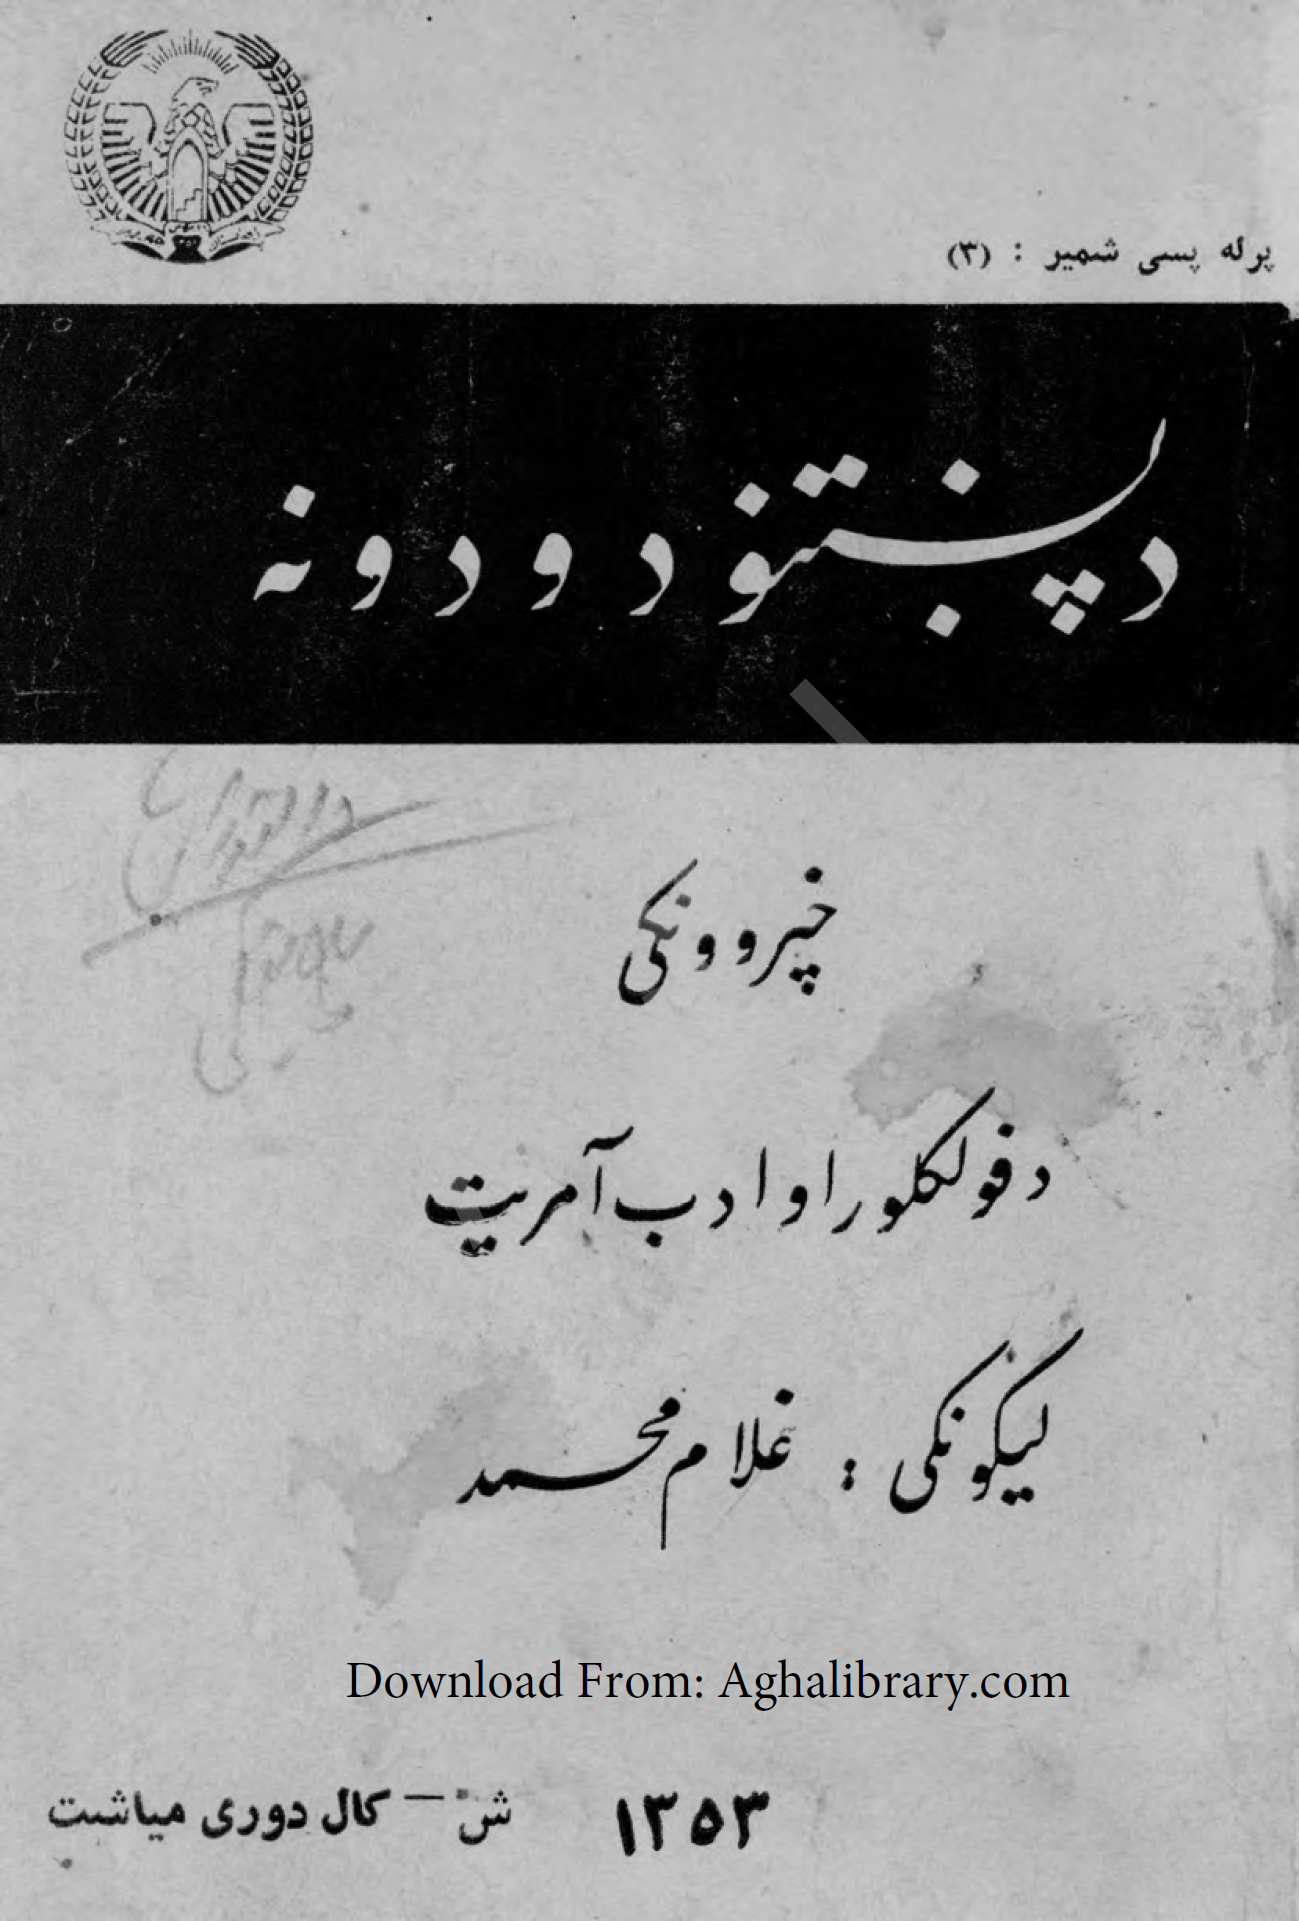 پرله پسی شمیر : (۳)
د پښتنو دودونه
خپروونکی
د فولکلور او ادب آمریت
لیکونکی : غلام محمد
Download From: Aghalibrary.com
۱۳۵۳ ش — کال دوری میاشت